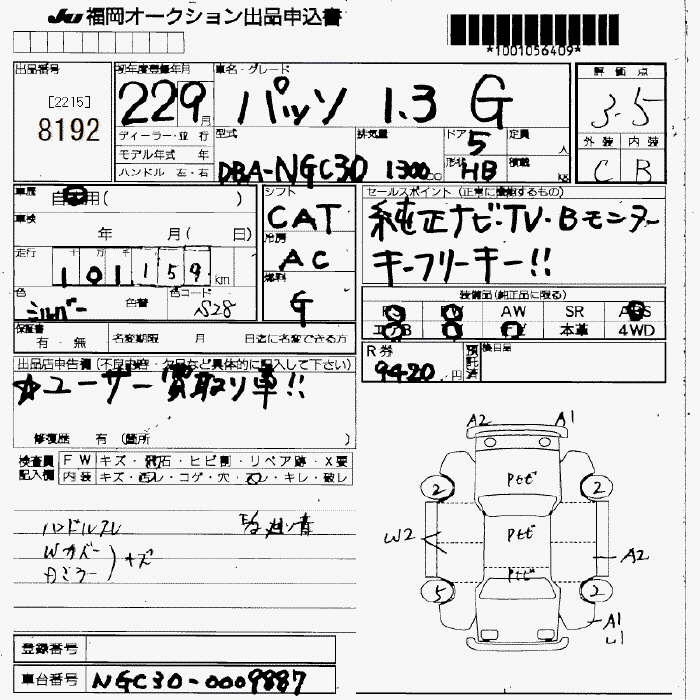 JU 福岡オークション出品申込書
*1001056409*
出品番号
[2215]
8192
初年度登録年月
22 9 月
ディーラー・並 行
モデル年式 年
ハンドル 左・右
車名・グレード
パッソ 1.3 G
型式
DBA-NGC30
排気量
1300 cc
ドア
5
形状
HB
定員
人
積載
kg
評価点
3.5
外装 内装
C B
車歴
自家用( )
車検
年 月( 日)
走行
十 万 千
101,159 km
色
シルバー
色替
色コード
S28
シフト
CAT
冷房
AC
燃料
G
セールスポイント(正常に機能するもの)
純正ナビ・TV・Bモニター
キーフリーキー!!
装備品(純正品に限る)
PS PW AW SR ABS
エアB TV 本革 4WD
R券
9420 円
預託済
検目品
保証書
有・無
名変期限 月 日迄に名変できる方
出品店申告欄(不良内容・欠品など具体的に記入して下さい)
☆ユーザー買取り車!!
修復歴 有(箇所 )
検査員
記入欄
FW キズ・飛石・ヒビ割・リペア跡・X要
内装 キズ・スレ・コゲ・穴・キレ・破レ
ハンドルスレ
Wカバー
Aミラー
キズ
A2 A1
Pセビ
2 2
Pセビ
W2
A2
Pセビ
5 2
A1
登録番号
車台番号 NGC30-0009887